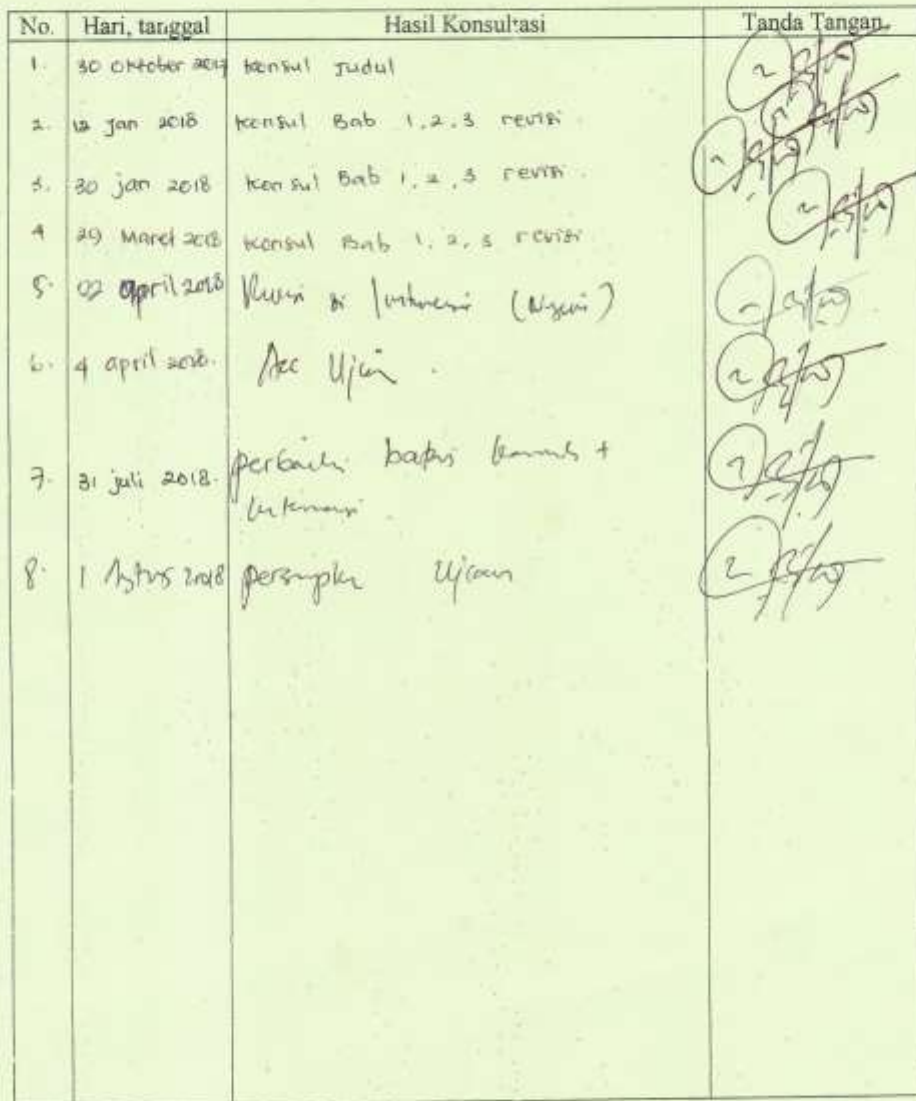 No. Hari, tanggal Hasil Konsultasi Tanda Tangan
1. 30 Oktober 2017 konsul Judul
2. 12 Jan 2018 konsul Bab 1,2,3 revisi
3. 30 jan 2018 konsul Bab 1,2,3 revisi.
4 29 Maret 2018 konsul Bab 1,2,3 revisi
5. 02 april 2018
6. 4 april 2018. Acc Ujian.
7. 31 juli 2018.
8. 1 Agtus 2018 Ujian